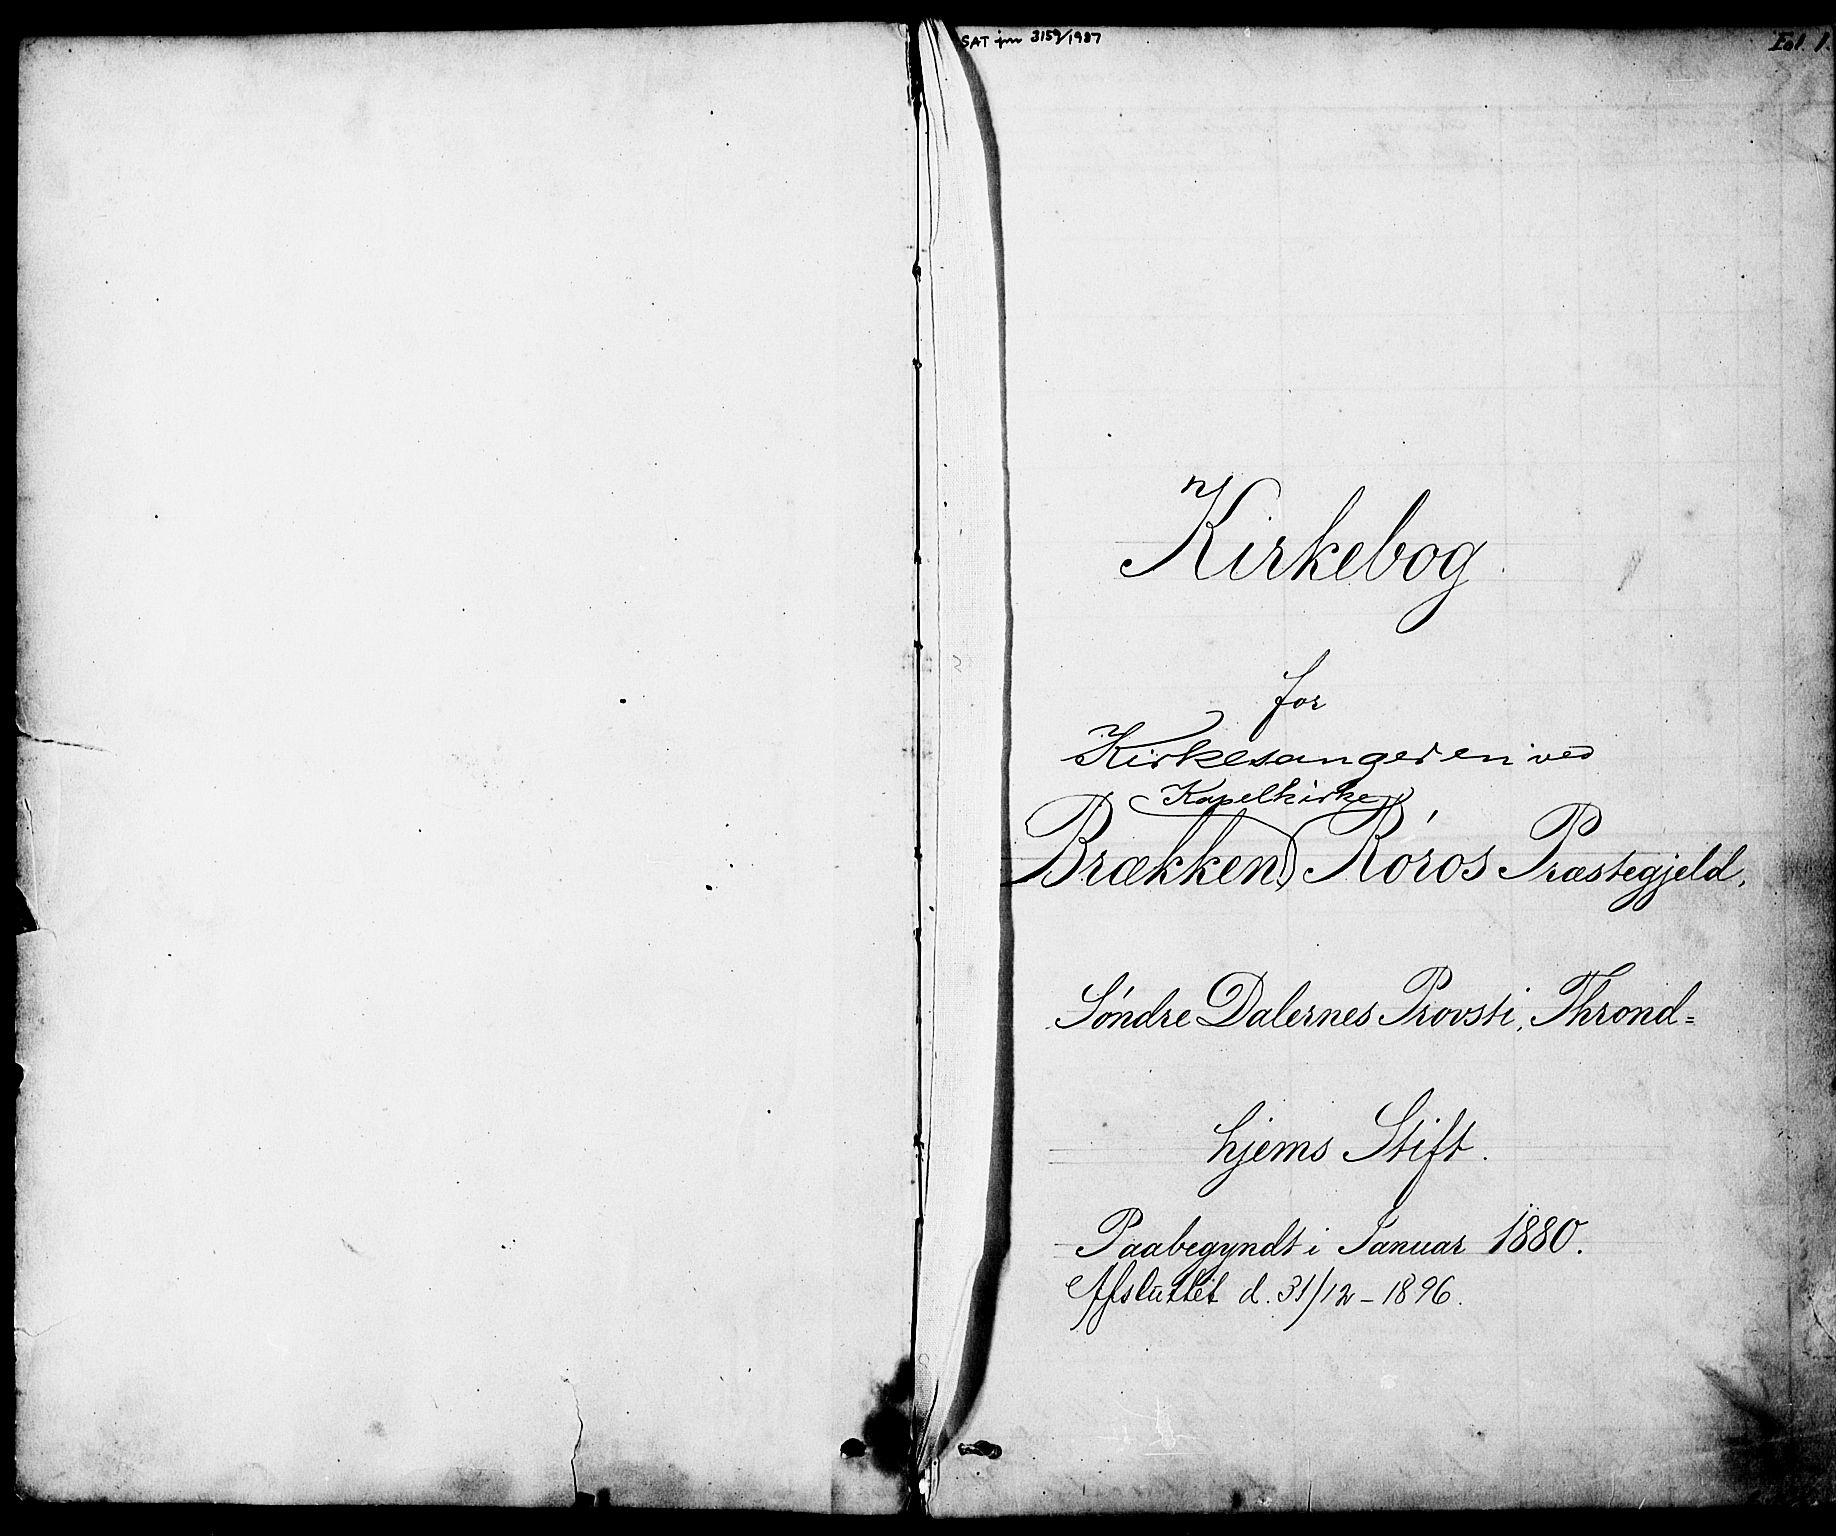 SAT jnr 3159/1987
Fol. 1.
Kirkebog
for
Kirkesangeren ved
Kapelkirke
Brækken, Røros Præstegjeld.
Søndre Dalernes Provsti, Thrond=
hjems Stift.
Paabegyndt i Januar 1880.
Afsluttet d. 31/12 - 1896.